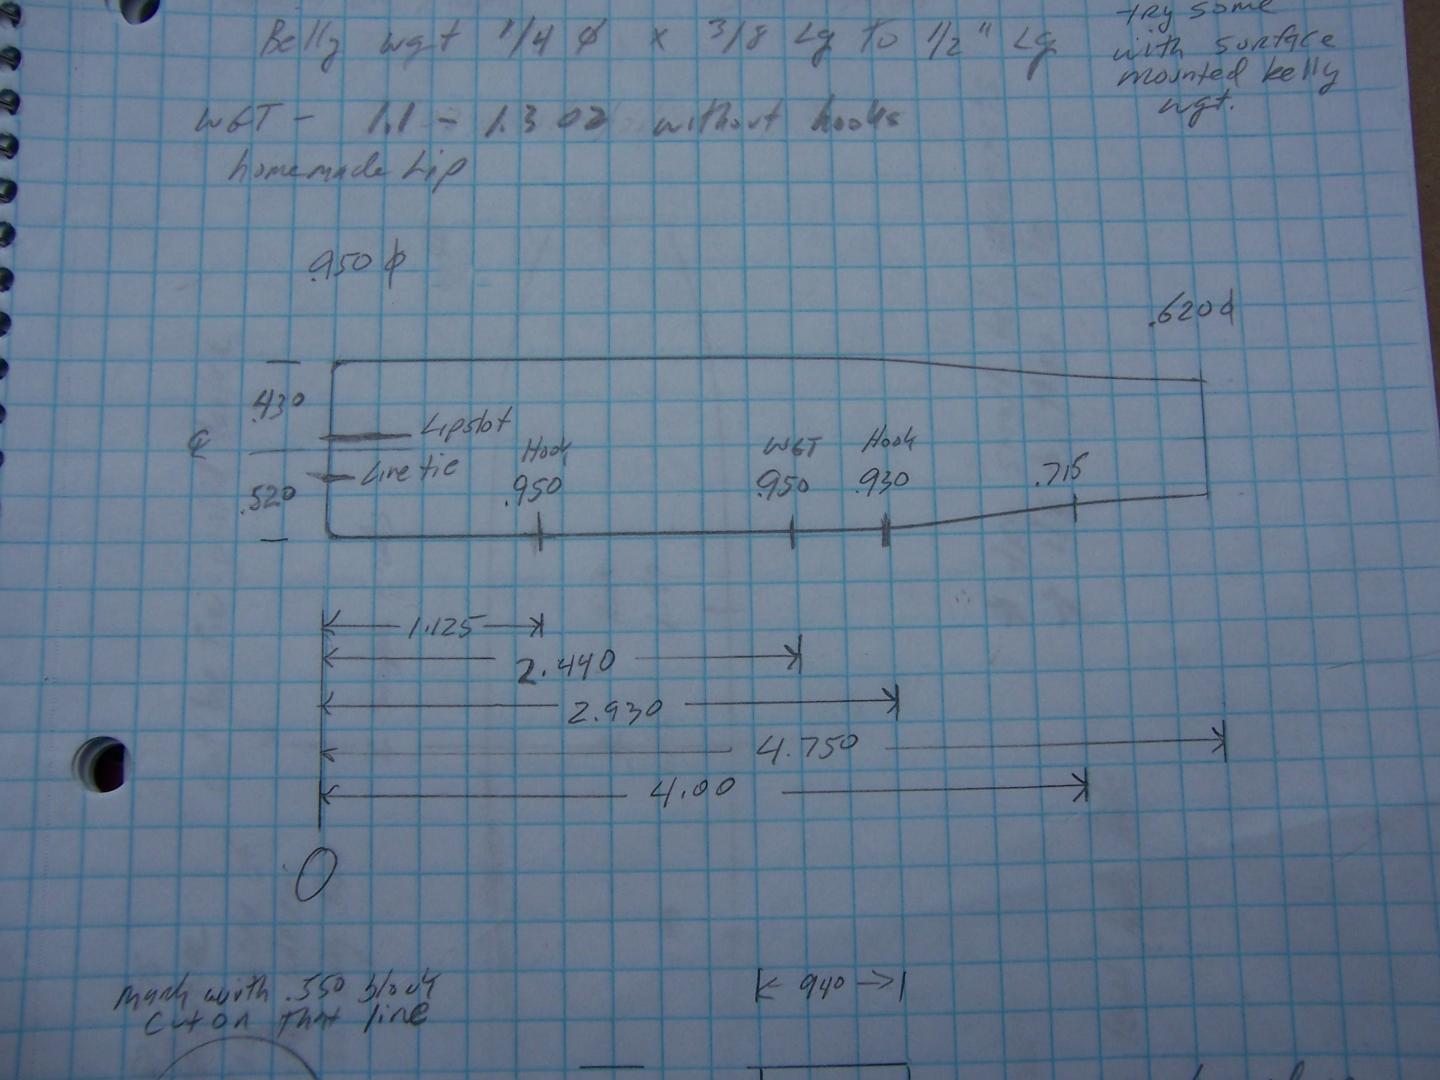 Belly wgt 1/4 ϕ x 3/8 Lg to 1/2" Lg
try some
with surface
mounted belly
wgt.
WGT - 1.1 - 1.3 oz without hooks
homemade Lip
.950 ϕ
.620 ϕ
.430
℄
.520
Lipslot
Line tie
Hook
.950
WGT
.950
Hook
.930
.715
1.125
2.440
2.930
4.750
4.00
0
mark with .550 block
cut on that line
.940